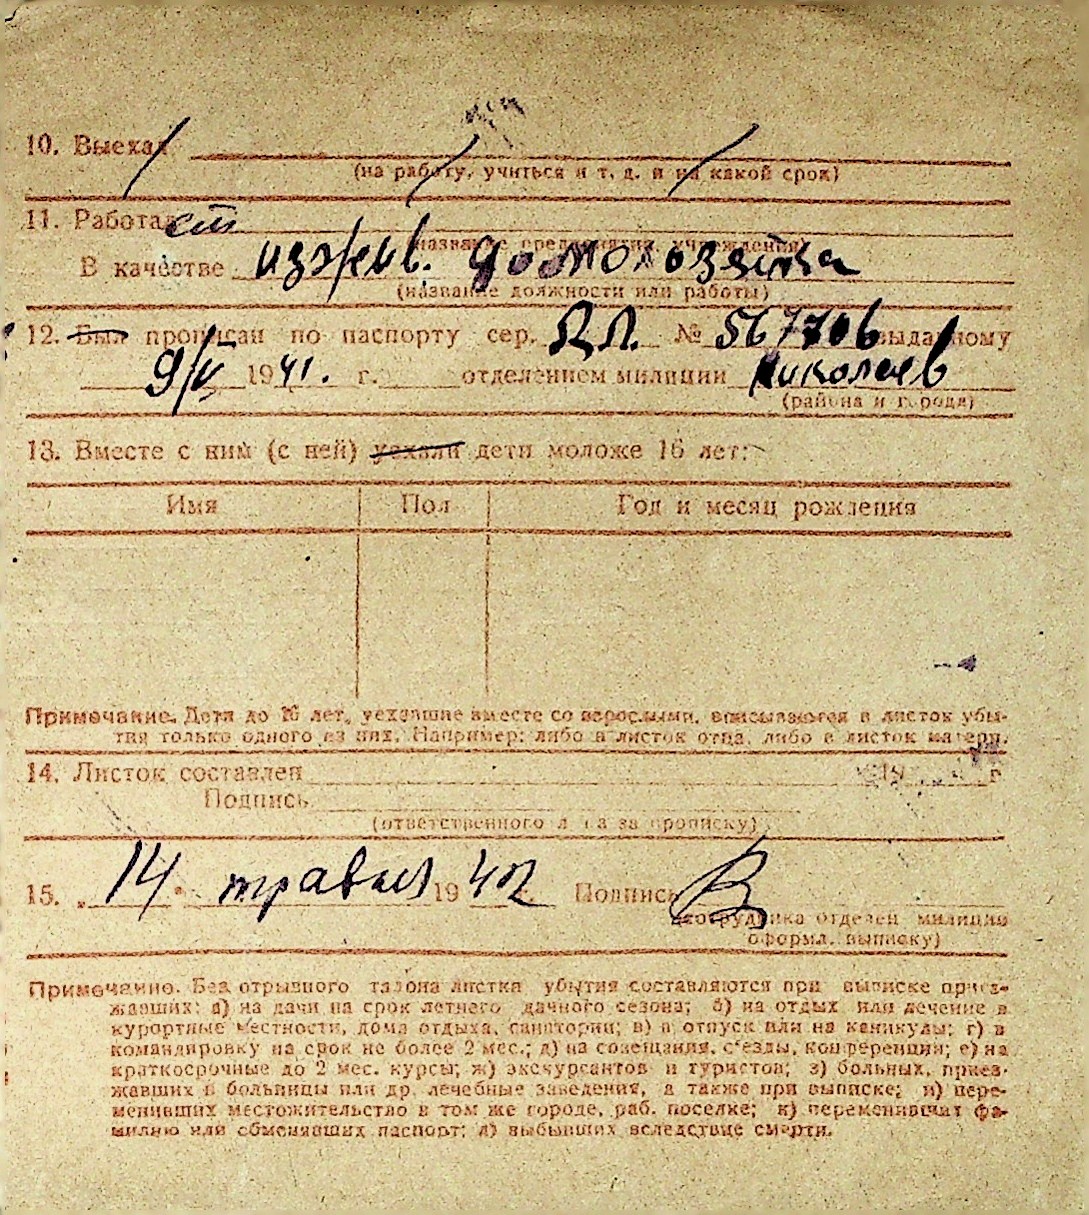 10. Выехал
(на работу, учиться и т. д. и на какой срок)
11. Работал
(название предприятия, учреждения)
В качестве ижжив. домохозяйка
(название должности или работы)
12. Был прописан по паспорту сер. № 567706 выданному
9/V 1941. г. отделением милиции Николаев
(района и города)
13. Вместе с ним (с ней) уехали дети моложе 16 лет:
Имя Пол Год и месяц рождения
Примечание. Дети до 16 лет, уехавшие вместе со взрослыми, вписываются в листок убы-
тия только одного из них. Например: либо в листок отца, либо в листок матери.
14. Листок составлен 19 г.
Подпись
(ответственного лица за прописку)
15. „14" травня 1942 Подпись
(сотрудника отделен. милиции
оформл. выписку)
Примечание. Без отрывного талона листка убытия составляются при выписке приез-
жавших: а) на дачи на срок летнего дачного сезона; б) на отдых или лечение в
курортные местности, дома отдыха, санатории; в) в отпуск или на каникулы; г) в
командировку на срок не более 2 мес.; д) на совещания, с'езды, конференции; е) на
краткосрочные до 2 мес. курсы; ж) экскурсантов и туристов; з) больных, приез-
жавших в больницы или др. лечебные заведения, а также при выписке; и) пере-
менивших местожительство в том же городе, раб. поселке; к) переменивших фа-
милию или обменявших паспорт; л) выбывших вследствие смерти.